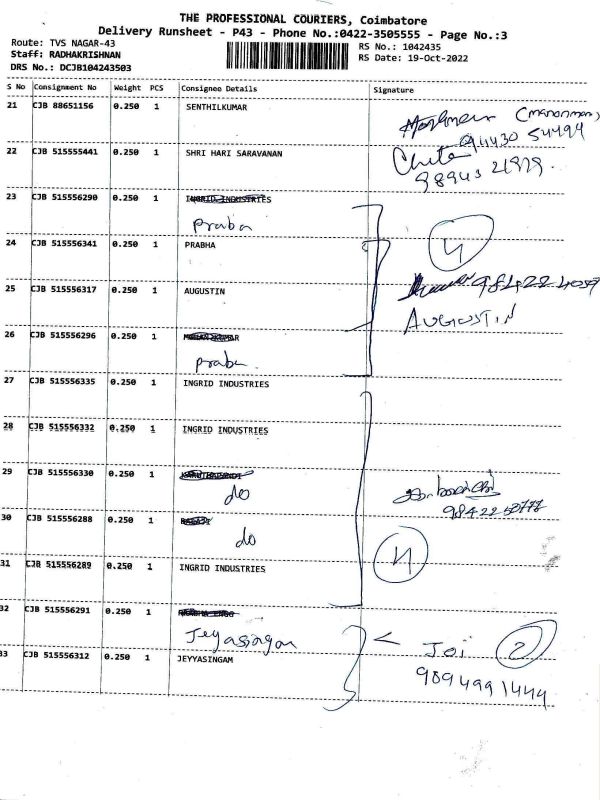 THE PROFESSIONAL COURIERS, Coimbatore
Delivery Runsheet - P43 - Phone No.:0422-3505555 - Page No.:3
Route: TVS NAGAR-43
RS No.: 1042435
Staff: RADHAKRISHNAN
RS Date: 19-Oct-2022
DRS No.: DCJB104243503
S No Consignment No Weight PCS Consignee Details Signature
21 CJB 88651156 0.250 1 SENTHILKUMAR
94430 54494
22 CJB 515555441 0.250 1 SHRI HARI SARAVANAN
23 CJB 515556290 0.250 1 INGRID INDUSTRIES
Praba
24 CJB 515556341 0.250 1 PRABHA
4
25 CJB 515556317 0.250 1 AUGUSTIN
AUGUSTIN
26 CJB 515556296 0.250 1
Praba
27 CJB 515556335 0.250 1 INGRID INDUSTRIES
28 CJB 515556332 0.250 1 INGRID INDUSTRIES
29 CJB 515556330 0.250 1
do
30 CJB 515556288 0.250 1
do
31 CJB 515556289 0.250 1 INGRID INDUSTRIES
4
32 CJB 515556291 0.250 1
Jeyasingam
Joi 2
33 CJB 515556312 0.250 1 JEYYASINGAM
9894991444